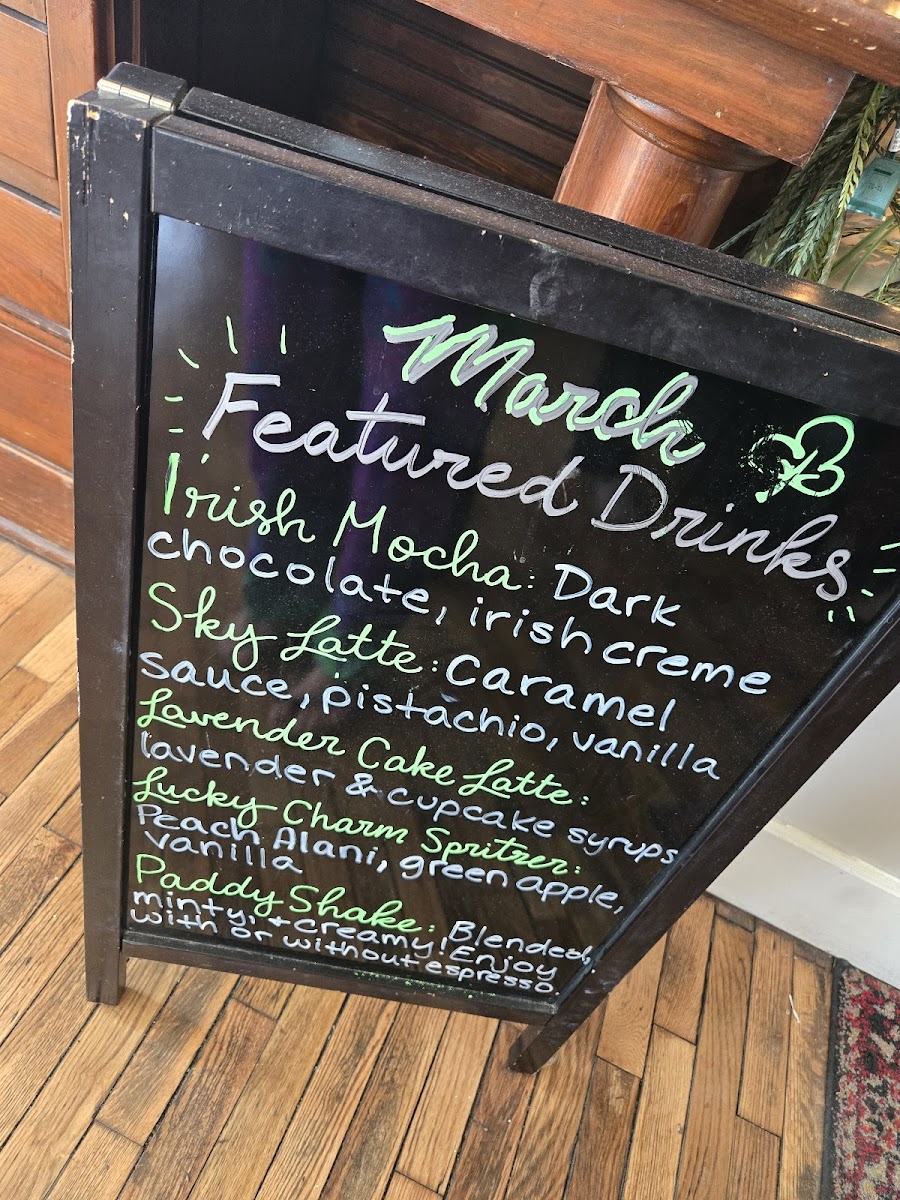 March
Featured Drinks
Irish Mocha: Dark
chocolate, irish creme
Sky Latte: Caramel
sauce, pistachio, vanilla
Lavender Cake Latte:
lavender & cupcake syrups
Lucky Charm Spritzer:
Peach Alani, green apple,
vanilla
Paddy Shake: Blended,
minty, + creamy! Enjoy
with or without espresso.